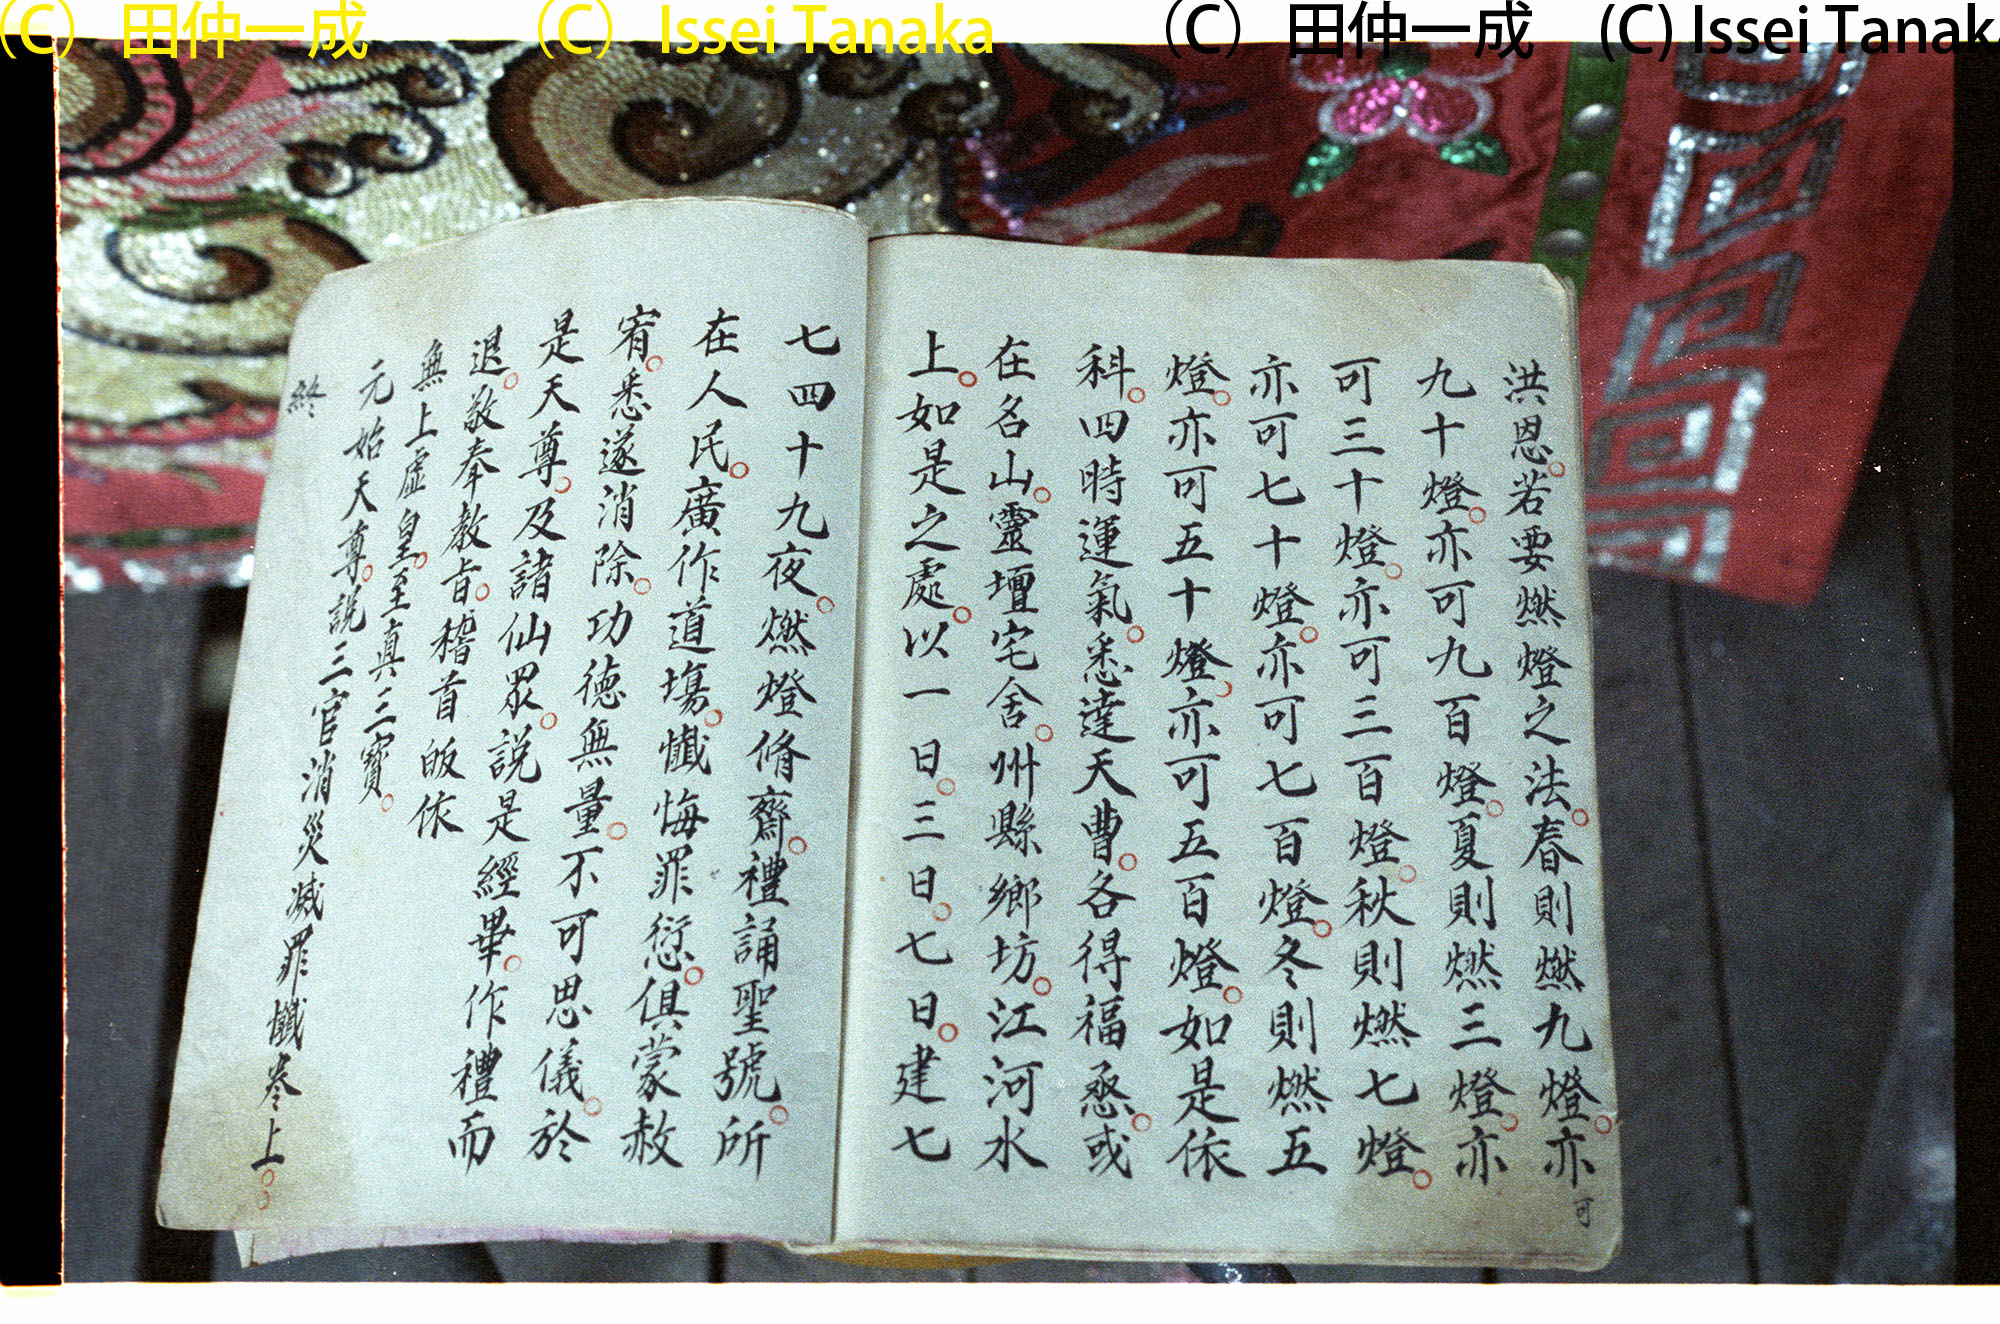 (C) 田仲一成 (C) Issei Tanaka (C) 田仲一成 (C) Issei Tanak
洪恩。若要燃燈之法。春則燃九燈。亦可
九十燈。亦可九百燈。夏則燃三燈。亦
可三十燈。亦可三百燈。秋則燃七燈。
亦可七十燈。亦可七百燈。冬則燃五
燈。亦可五十燈。亦可五百燈。如是依
科。四時運氣。悉達天曹。各得福愍。或
在名山。靈壇宅舍。州縣鄉坊。江河水
上。如是之處。以一日。三日。七日。建七
七四十九夜。燃燈脩齋。禮誦聖號。所
在人民。廣作道塲。懺悔罪愆。俱蒙赦
宥。悉遂消除。功德無量。不可思儀。於
是天尊。及諸仙眾。說是經畢。作禮而
退。敬奉教旨。稽首皈依
無上虛皇。至真三寶。
元始天尊。說三官消災滅罪懺卷上。。
終